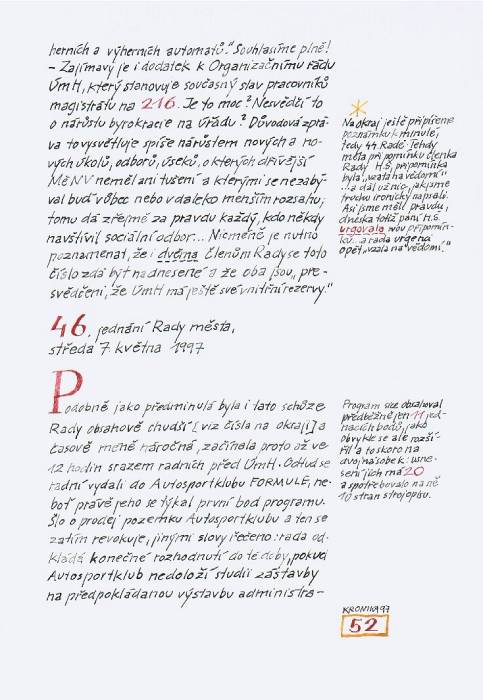 herních a výherních automatů." Souhlasíme plně!
– Zajímavý je i dodatek k Organizačnímu řádu
ÚmH, který stanovuje současný stav pracovníků
magistrátu na 216. Je to moc? Nesvědčí to
o nárůstu byrokracie na úřadu? Důvodová zprá-
va to vysvětluje spíše nárůstem nových a no-
vých úkolů, odborů, úseků, o kterých dřívější
MěNV neměl ani tušení a kterými se nezabý-
val buď vůbec nebo v daleko menším rozsahu;
tomu dá zřejmě za pravdu každý, kdo někdy
navštívil sociální odbor... Nicméně je nutno
poznamenat, že i dvěma členům Rady se toto
číslo zdá být nadnesené a že oba jsou „pře-
svědčeni, že ÚmH má ještě své vnitřní rezervy."
46. jednání Rady města,
středa 7. května 1997
Podobně jako předminulá byla i tato schůze
Rady obsahově chudší [viz čísla na okraji] a
časově méně náročná, začínala proto až ve
12 hodin srazem radních před ÚmH. Odtud se
radní vydali do Autosportklubu FORMULE, ne-
boť právě jeho se týkal první bod programu.
Šlo o prodej pozemku Autosportklubu a ten se
zatím revokuje, jinými slovy řečeno: rada od-
kládá konečné rozhodnutí do té doby, pokud
Autosportklub nedoloží studii zástavby
na předpokládanou výstavbu administra-
Na okraj ještě připíšeme
poznámku k minulé,
tedy 44. Radě. Tehdy
měla připomínku členka
Rady H.S., připomínka
byla „vzata na vědomí"
...a dál už nic, jak jsme
trochu ironicky napsali.
Asi jsme měli pravdu,
dneska totiž paní H.S.
urgovala svou připomín-
ku... a rada urgenci
opět „vzala na vědomí."
Program sice obsahoval
předběžně jen 11 jed-
nacích bodů, jako
obvykle se ale rozší-
řil a to skoro na
dvojnásobek: usne-
sení jich má 20
a spotřebovalo na ně
10 stran strojopisu.
KRONIKA 97
52